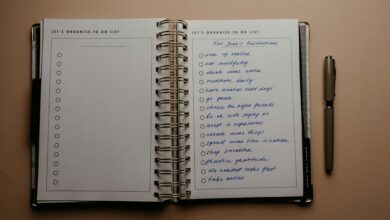 LET'S ORGANISE TO DO LIST
LET'S ORGANISE TO DO LIST
New Year's Resolutions
wake up earlier
eat mindfully
drink more water
meditate daily
have manger most days
go green
choose the right friends
be ok with saying no
invest in experiences
create more things
spend more time in nature
shop smarter
practice gratitude
do hardest tasks first
take notes